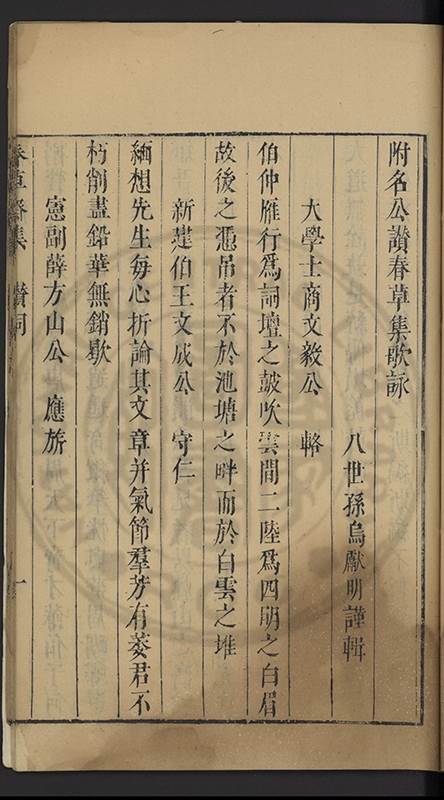 附名公讃春草集歌詠
八世孫烏獻明謹輯
大學士商文毅公　輅
伯仲雁行爲詞壇之鼓吹雲間二陸爲四明之白眉
故後之憑吊者不於池塘之畔而於白雲之堆
新建伯王文成公　守仁
緬想先生每心折論其文章并氣節羣芳有萎君不
朽削盡鉛華無銷歇
憲副薛方山公　應旂
春草齋集　讃詞　一